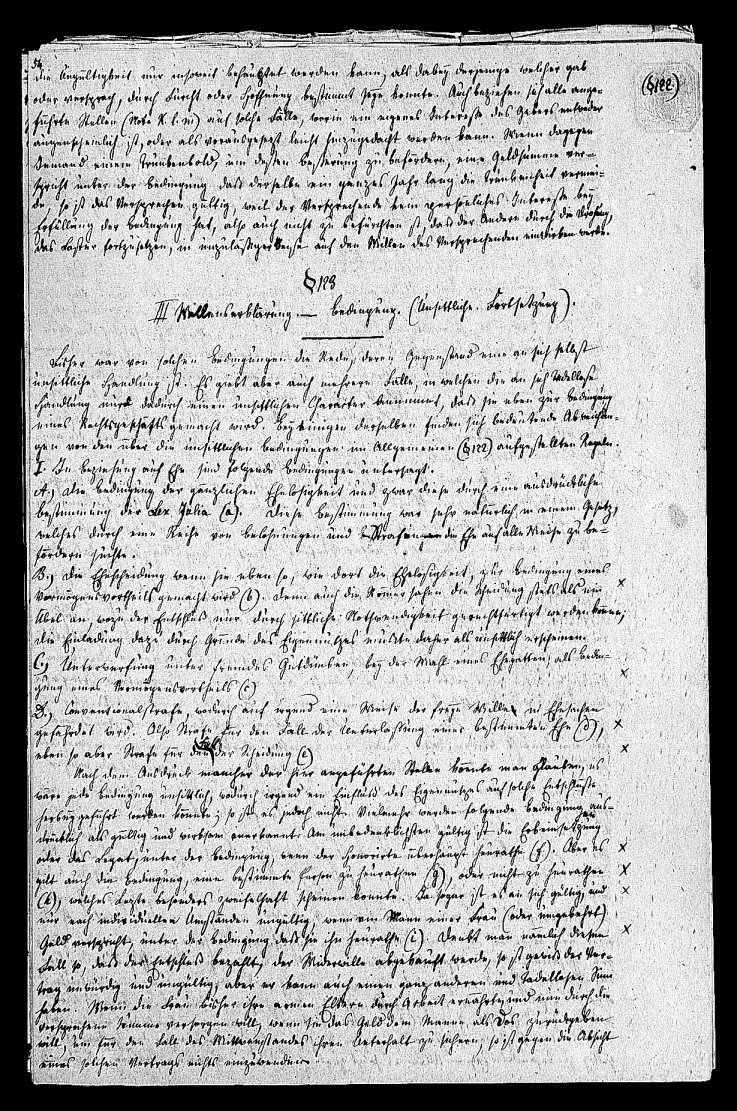 54.
die Ungültigkeit nur insoweit behauptet werden kann, als dabey derjenige welcher gab
oder versprach, durch Furcht oder Hoffnung bestimmt seyn konnte. Auch beziehen sich alle ange-
führte Stellen (Note k. l. m) auf solche Fälle, worin ein eigenes Interesse des Gebers entweder
augenscheinlich ist, oder als vorausgesetzt leicht hinzugedacht werden kann. Wenn dagegen
Jemand einem Trunkenbold, um dessen Besserung zu befördern, eine Geldsumme ver-
spricht unter der Bedingung daß derselbe ein ganzes Jahr lang die Trunkenheit vermei-
de, so ist das Versprechen gültig, weil der Versprechende kein persönliches Interesse bey
Erfüllung der Bedingung hat, also auch nicht zu befürchten ist, daß der Andere durch die Drohung,
das Laster fortzusetzen, in unzulässiger Weise auf den Willen des Versprechenden einwirken werde.
(§122)
§123
III Willenserklärung. — Bedingung. (Unsittliche. Fortsetzung).
Bisher war von solchen Bedingungen die Rede, deren Gegenstand eine an sich selbst
unsittliche Handlung ist. Es giebt aber auch mehrere Fälle, in welchen die an sich tadellose
Handlung nur dadurch einen unsittlichen Character annimmt, daß sie eben zur Bedingung
eines Rechtsgeschäfts gemacht wird. Bey einigen derselben finden sich bedeutende Abweichun-
gen von den über die unsittlichen Bedingungen im Allgemeinen (§122) aufgestellten Regeln.
I. In Beziehung auf Ehe sind folgende Bedingungen untersagt.
A.) Die Bedingung der gänzlichen Ehelosigkeit und zwar diese durch eine ausdrückliche
Bestimmung der Lex Julia (a). Diese Bestimmung war sehr natürlich in einem Gesetz,
welches durch eine Reihe von Belohnungen und Strafen die Ehe auf alle Weise zu be-
fördern suchte.
B.) Die Ehescheidung wenn sie eben so, wie dort die Ehelosigkeit, zur Bedingung eines
Vermögensvortheils gemacht wird (b). Denn auch die Römer sahen die Scheidung stets als ein
Übel an, wozu der Entschluß nur durch sittliche Nothwendigkeit gerechtfertigt werden könne,
die Einladung dazu durch Gründe des Eigennutzes mußte daher als unsittlich erscheinen.
C.) Unterwerfung unter fremdes Gutdünken, bey der Wahl eines Ehegatten, als Bedin-
gung eines Vermögensvortheils (c)
D.) Conventionalstrafe, wodurch auf irgend eine Weise der freye Wille in Ehesachen
gefährdet wird. Also Strafe für den Fall der Unterlassung einer bestimmten Ehe (d),
eben so aber Strafe für den Fall der Scheidung (e)
Nach dem Ausdruck mancher der hier angeführten Stellen könnte man glauben, es
wäre jede Bedingung unsittlich, wodurch irgend ein Einfluß des Eigennutzes auf solche Entschlüsse
herbeygeführt werden könnte; so ist es jedoch nicht. Vielmehr werden folgende Bedingung. aus-
drücklich als gültig und wirksam anerkannt. Am unbedenklichsten gültig ist die Erbeinsetzung
oder das Legat, unter der Bedingung, wenn der Honorirte überhaupt heurathe (f). Aber es
gilt auch die Bedingung, eine bestimmte Person zu heurathen (g), oder nicht zu heurathen
(h), welches Letzte besonders zweifelhaft scheinen könnte. Ja sogar ist es an sich gültig, und
nur nach individuellen Umständen ungültig, wenn ein Mann einer Frau (oder umgekehrt)
Geld verspricht, unter der Bedingung daß sie ihn heurathe (i). Denkt man nämlich diesen
Fall so, daß der Entschluß bezahlt, der Widerwille abgekauft werde, so ist gewiß der Ver-
trag unwürdig und ungültig; aber er kann auch einen ganz anderen und tadellosen Sinn
haben. Wenn die Frau bisher ihre armen Eltern durch Arbeit ernährte, und nun durch die
versprochene Summe versorgen will, wenn sie das Geld dem Manne als Dos zurückgeben
will, um für den Fall des Wittwenstandes ihren Unterhalt zu sichern; so ist gegen die Absicht
eines solchen Vertrags nichts einzuwenden.